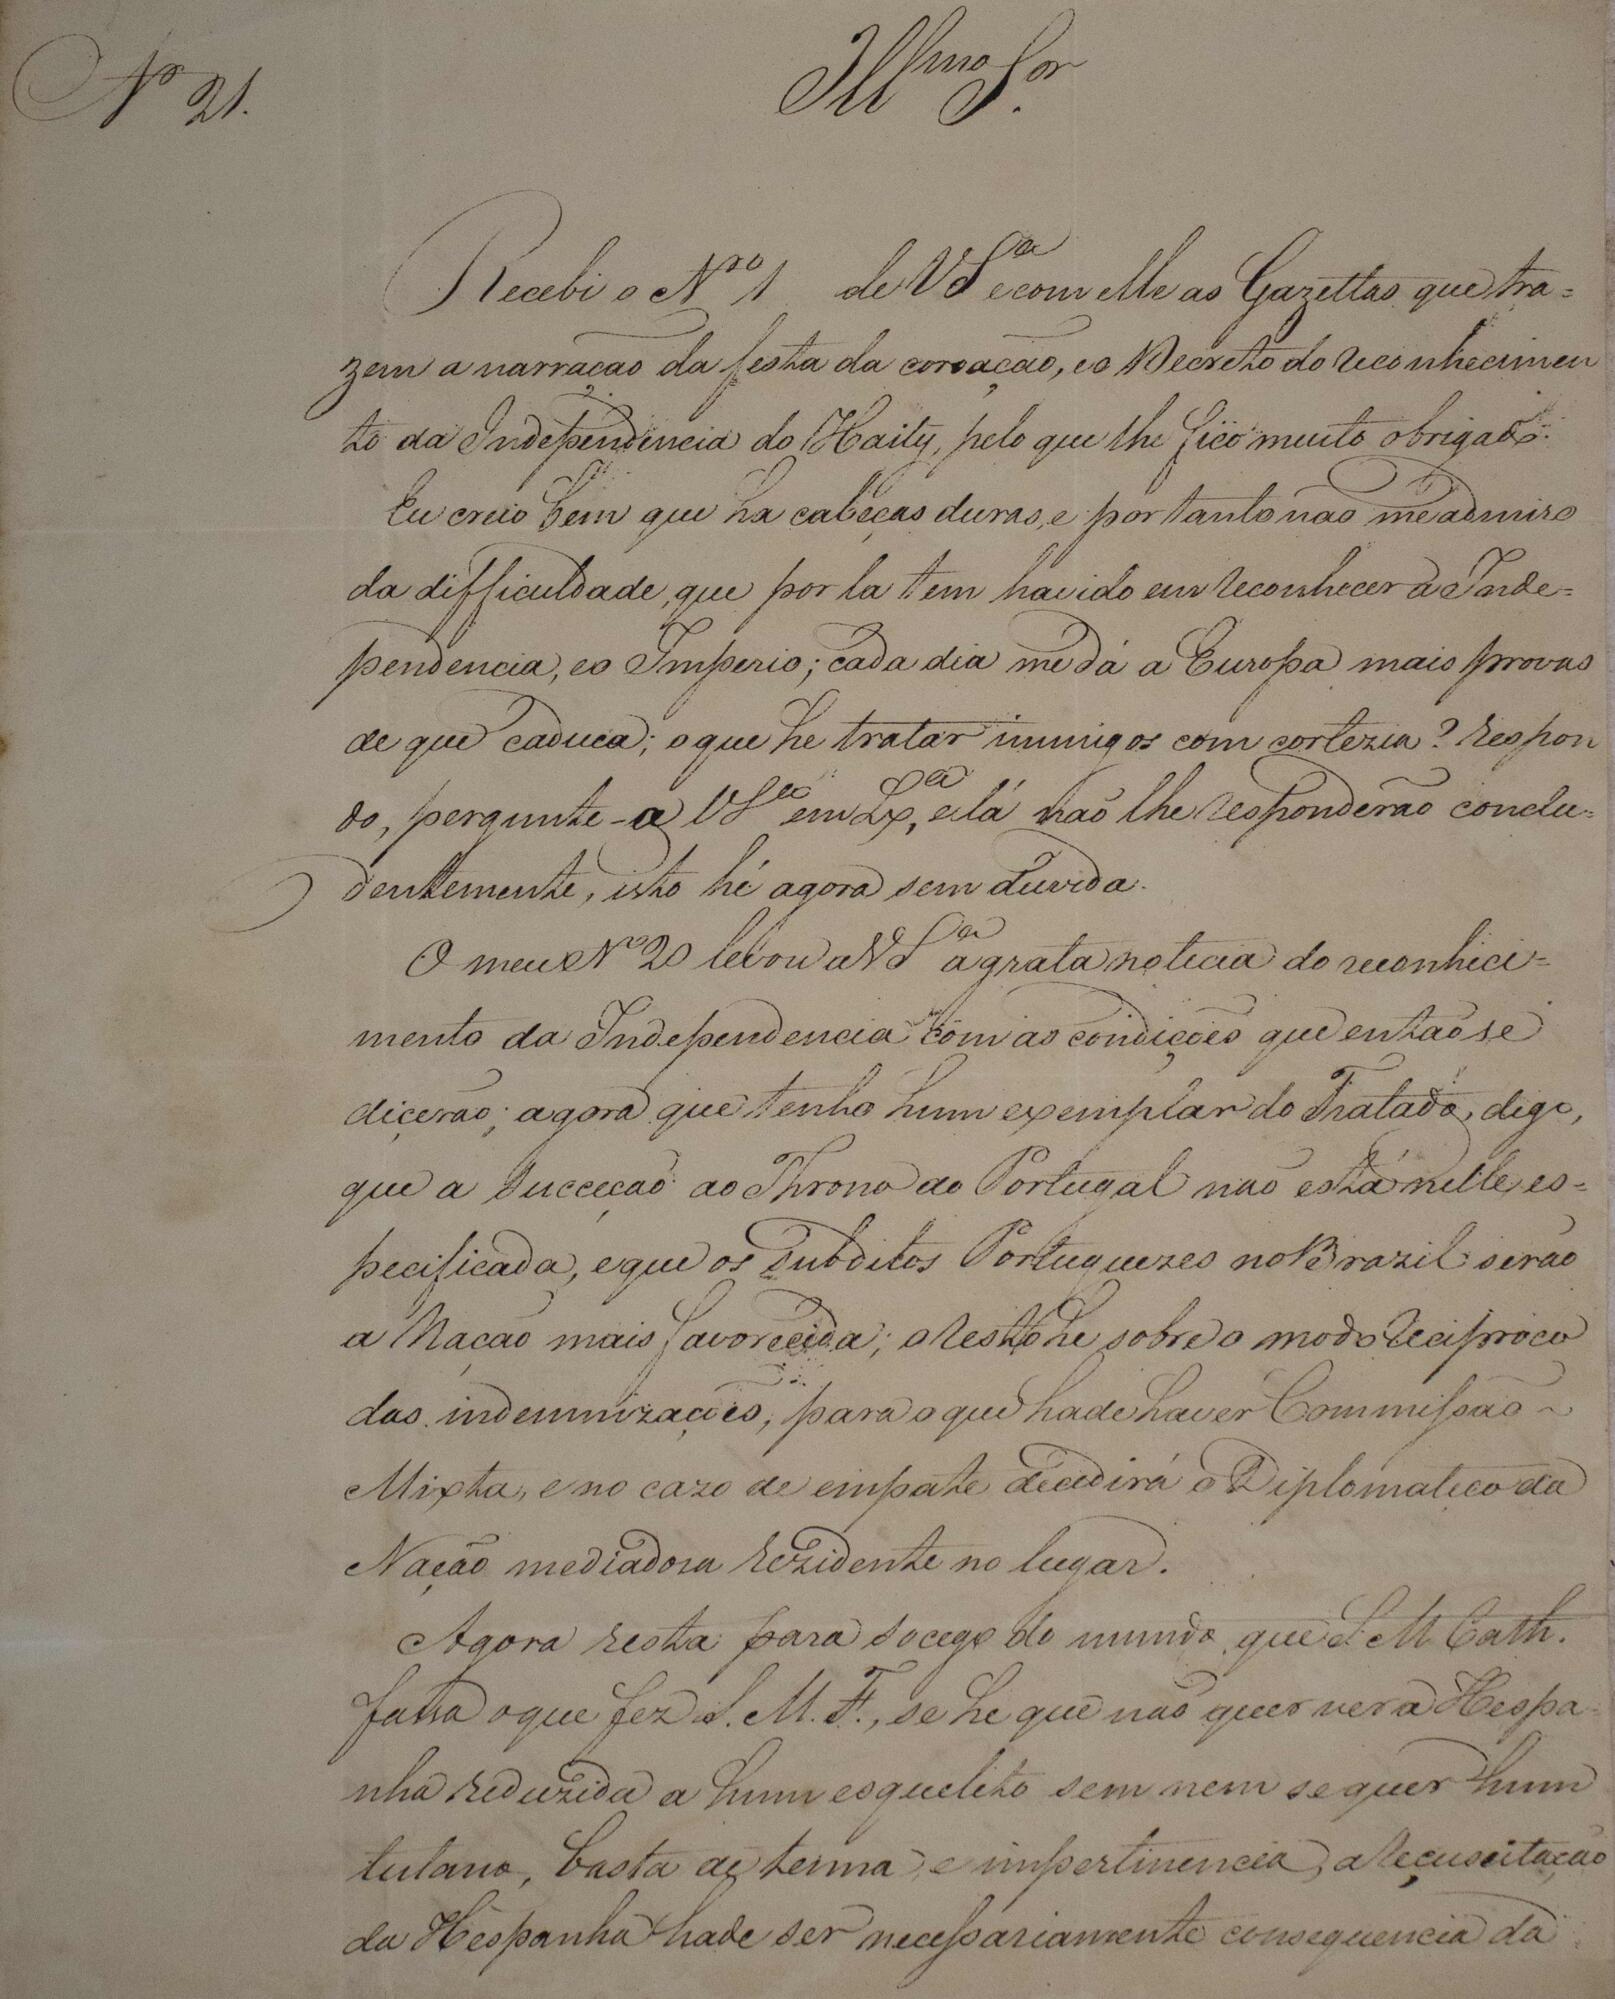 Nº 21.
Illmo Sor.
Recebi o Nro 1 de VSa e com elle as Gazettas que tra=
zem a narração da festa da coroação, e o Decreto do reconhecimen
to da Independencia do Haity, pelo que lhe fico muito obrigado.
Eu creio bem que ha cabeças duras, e portanto não me admiro
da difficuldade, que por la tem havido em reconhecer a Inde=
pendencia, e o Imperio; cada dia me dá a Europa mais provas
de que caduca; o que he tratar inimigos com cortezia? respon
do, pergunte-a VSa em Lxa, e lá não lhe responderão conclu=
dentemente, isto hé agora sem duvida.
O meu Nº 20 levou a VSa a grata noticia do reconheci=
mento da Independencia com as condições que então se
diçerão; agora que tenho hum exemplar do Tratado, digo,
que a Succeção ao Throno de Portugal não está nelle es=
pecificada, e que os Subditos Portuguezes no Brazil serão
a Nação mais favorecida; o resto he sobre o modo reciproco
das indemnizações, para o que hade haver Commissão
Mixta, e no cazo de empate decedirá o Diplomatico da
Nação mediadora rezidente no lugar.
Agora resta para socego do mundo, que S. M. Cath.
fassa o que fez S. M. F., se he que não quer ver a Hespa=
nha reduzida a hum esqueleto sem nem sequer hum
tutano, basta de teima, e impertinencia, a reçuscitação
da Hespanha hade ser necessariamente consequencia da